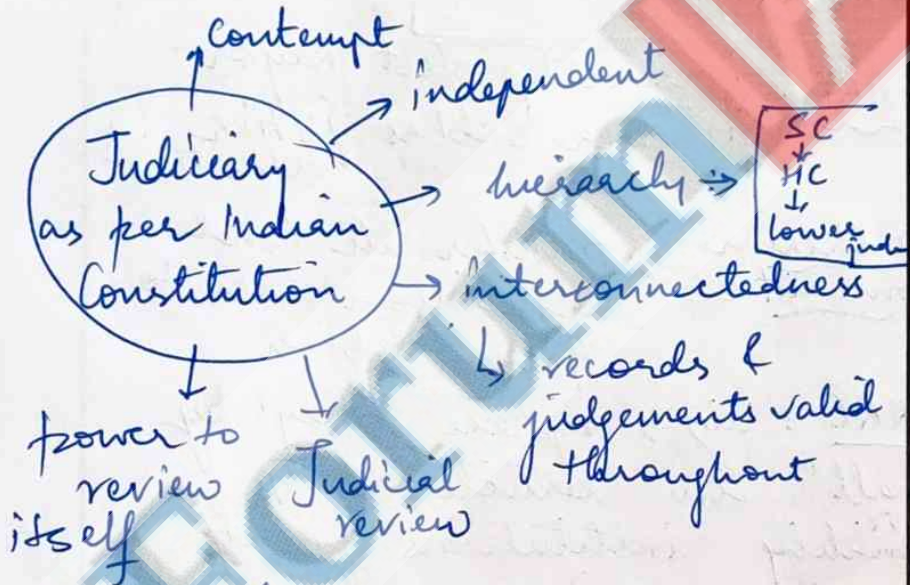 contempt
independent
Judiciary
as per Indian
Constitution
hierarchy ⇒
SC
↓
HC
↓
lower
judi
interconnectedness
↳ records &
judgements valid
throughout
power to
review
itself
Judicial
review
Forum